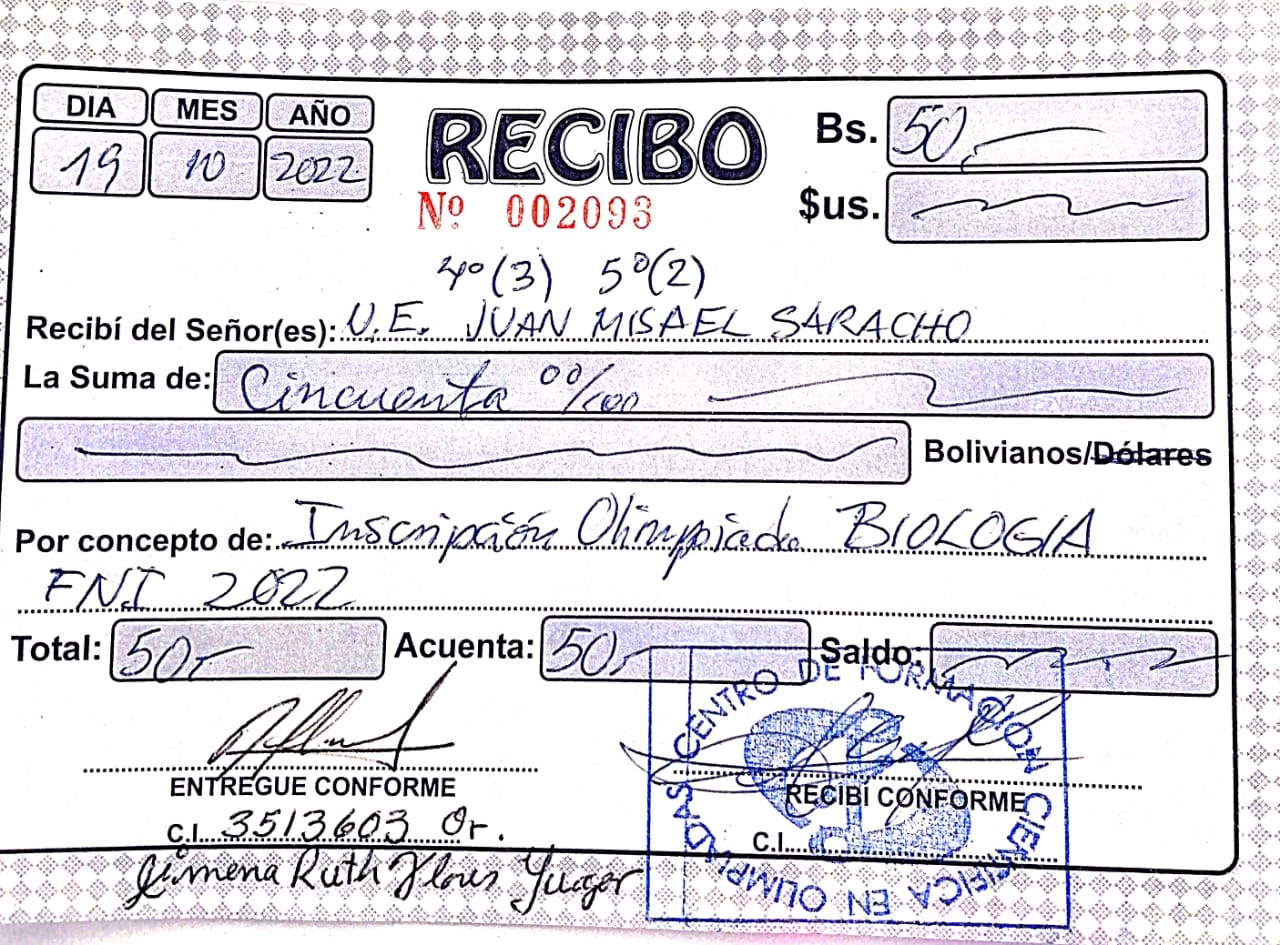 DIA MES AÑO
19 10 2022
RECIBO
Nº 002093
Bs. 50,-
$us.
4º(3) 5º(2)
Recibí del Señor(es): U.E. JUAN MISAEL SARACHO
La Suma de: Cincuenta 00/100
Bolivianos/Dólares
Por concepto de: Inscripción Olimpiada BIOLOGIA
FNI 2022
Total: 50,- Acuenta: 50,- Saldo:
ENTREGUE CONFORME
C.I. 3513603 Or.
Jimena Ruth Flores
RECIBI CONFORME
C.I.
CENTRO DE FORMACION CIENTIFICA EN OLIMPIADAS